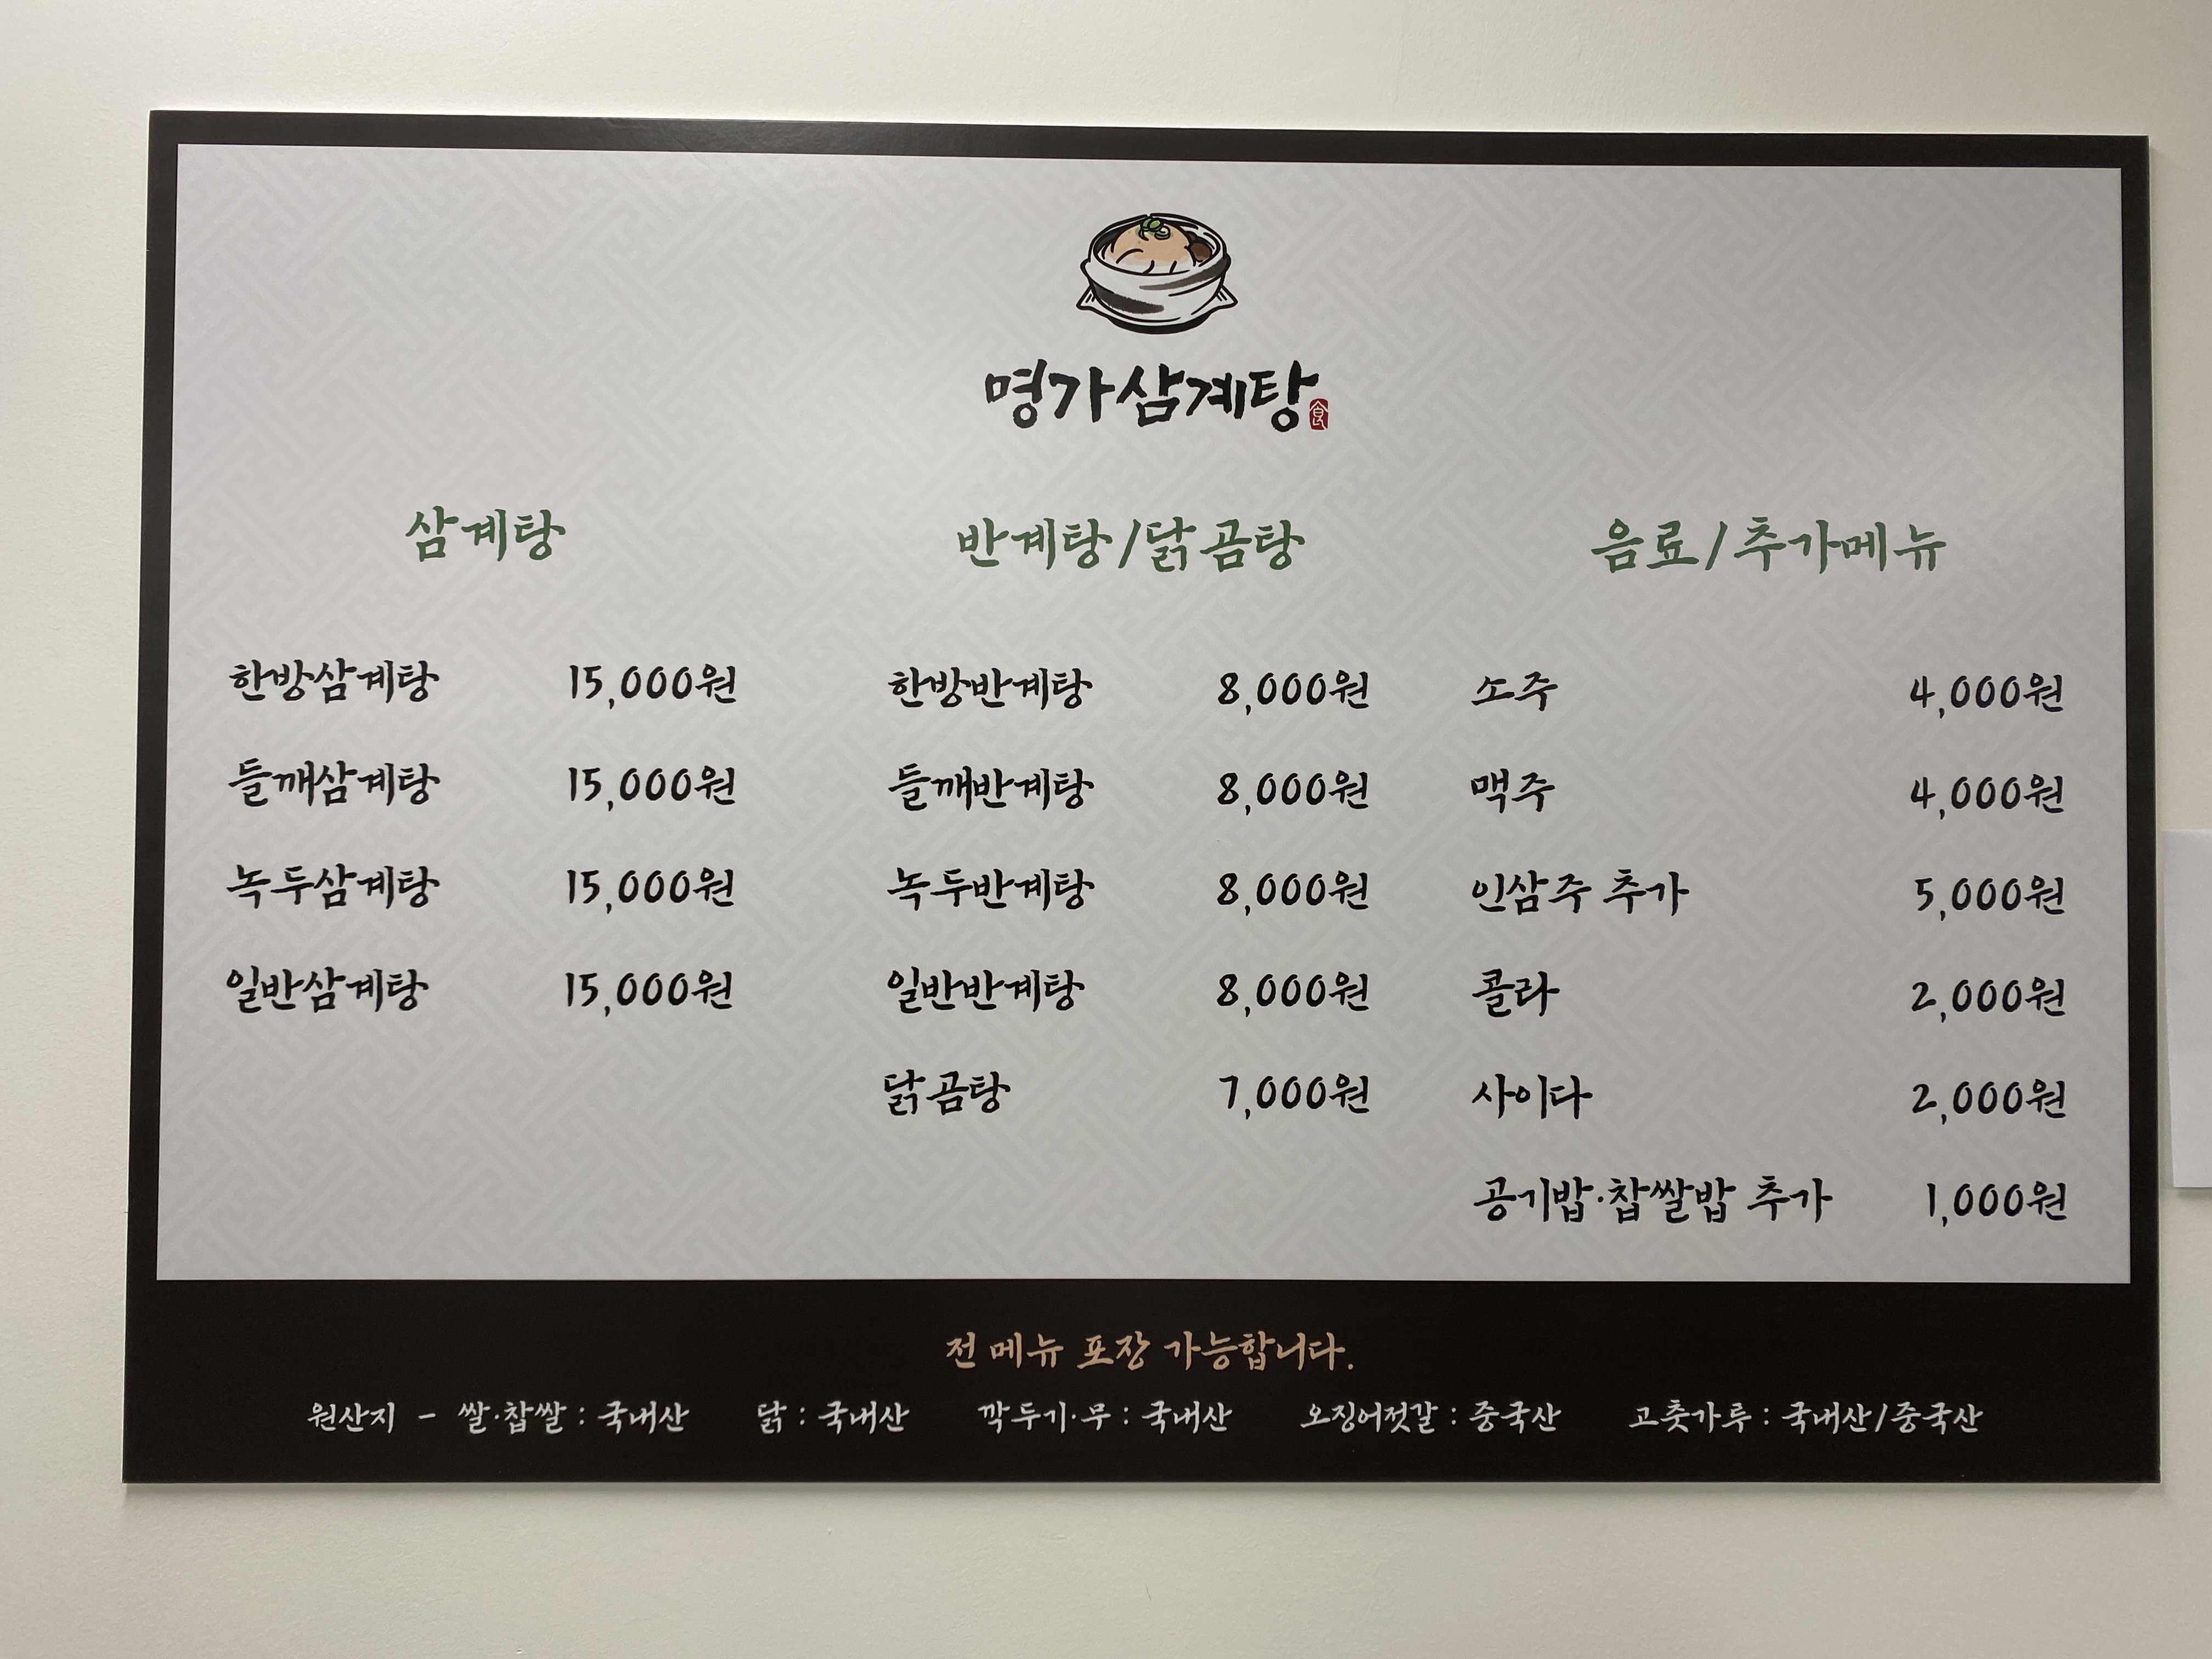 명가삼계탕
食
삼계탕
한방삼계탕 15,000원
들깨삼계탕 15,000원
녹두삼계탕 15,000원
일반삼계탕 15,000원
반계탕/닭곰탕
한방반계탕 8,000원
들깨반계탕 8,000원
녹두반계탕 8,000원
일반반계탕 8,000원
닭곰탕 7,000원
음료/추가메뉴
소주 4,000원
맥주 4,000원
인삼주 추가 5,000원
콜라 2,000원
사이다 2,000원
공기밥·찹쌀밥 추가 1,000원
전 메뉴 포장 가능합니다.
원산지 - 쌀·찹쌀 : 국내산 닭 : 국내산 깍두기·무 : 국내산 오징어젓갈 : 중국산 고춧가루 : 국내산/중국산